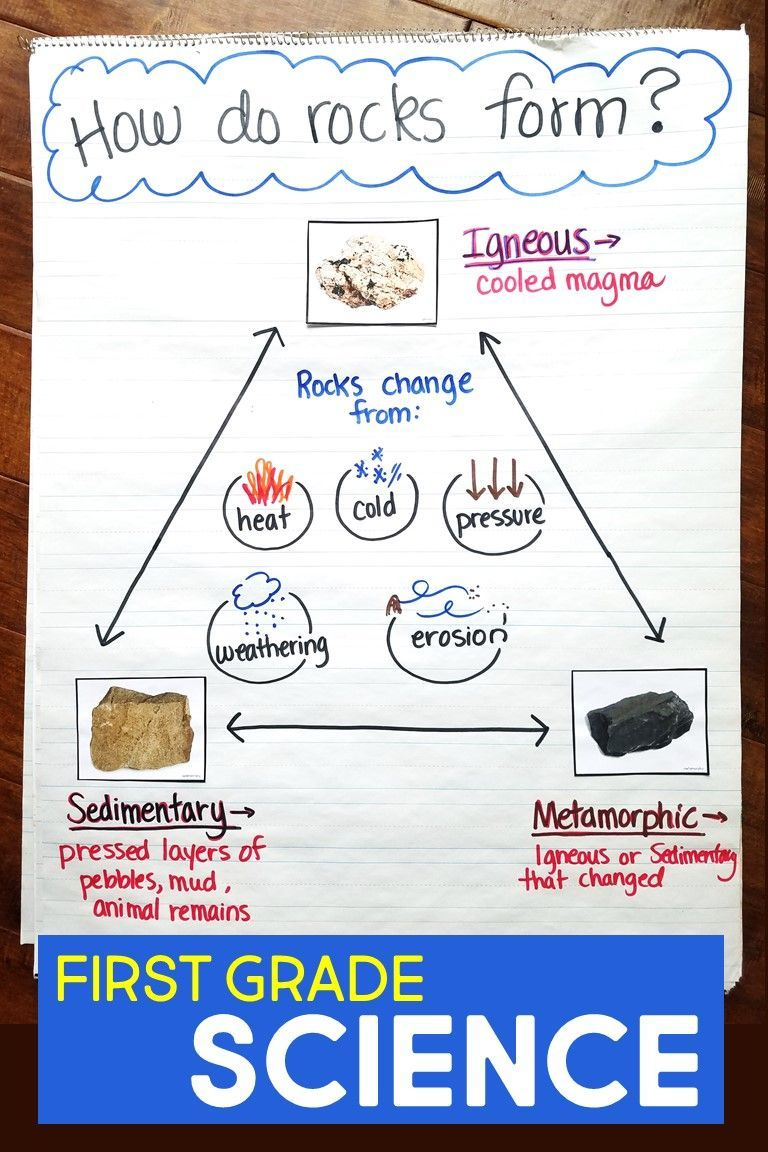 How do rocks form?
Igneous→
cooled magma
Rocks change
from:
heat
cold
pressure
weathering
erosion
Sedimentary→
pressed layers of
pebbles, mud,
animal remains
Metamorphic→
Igneous or Sedimentary
that changed
FIRST GRADE
SCIENCE